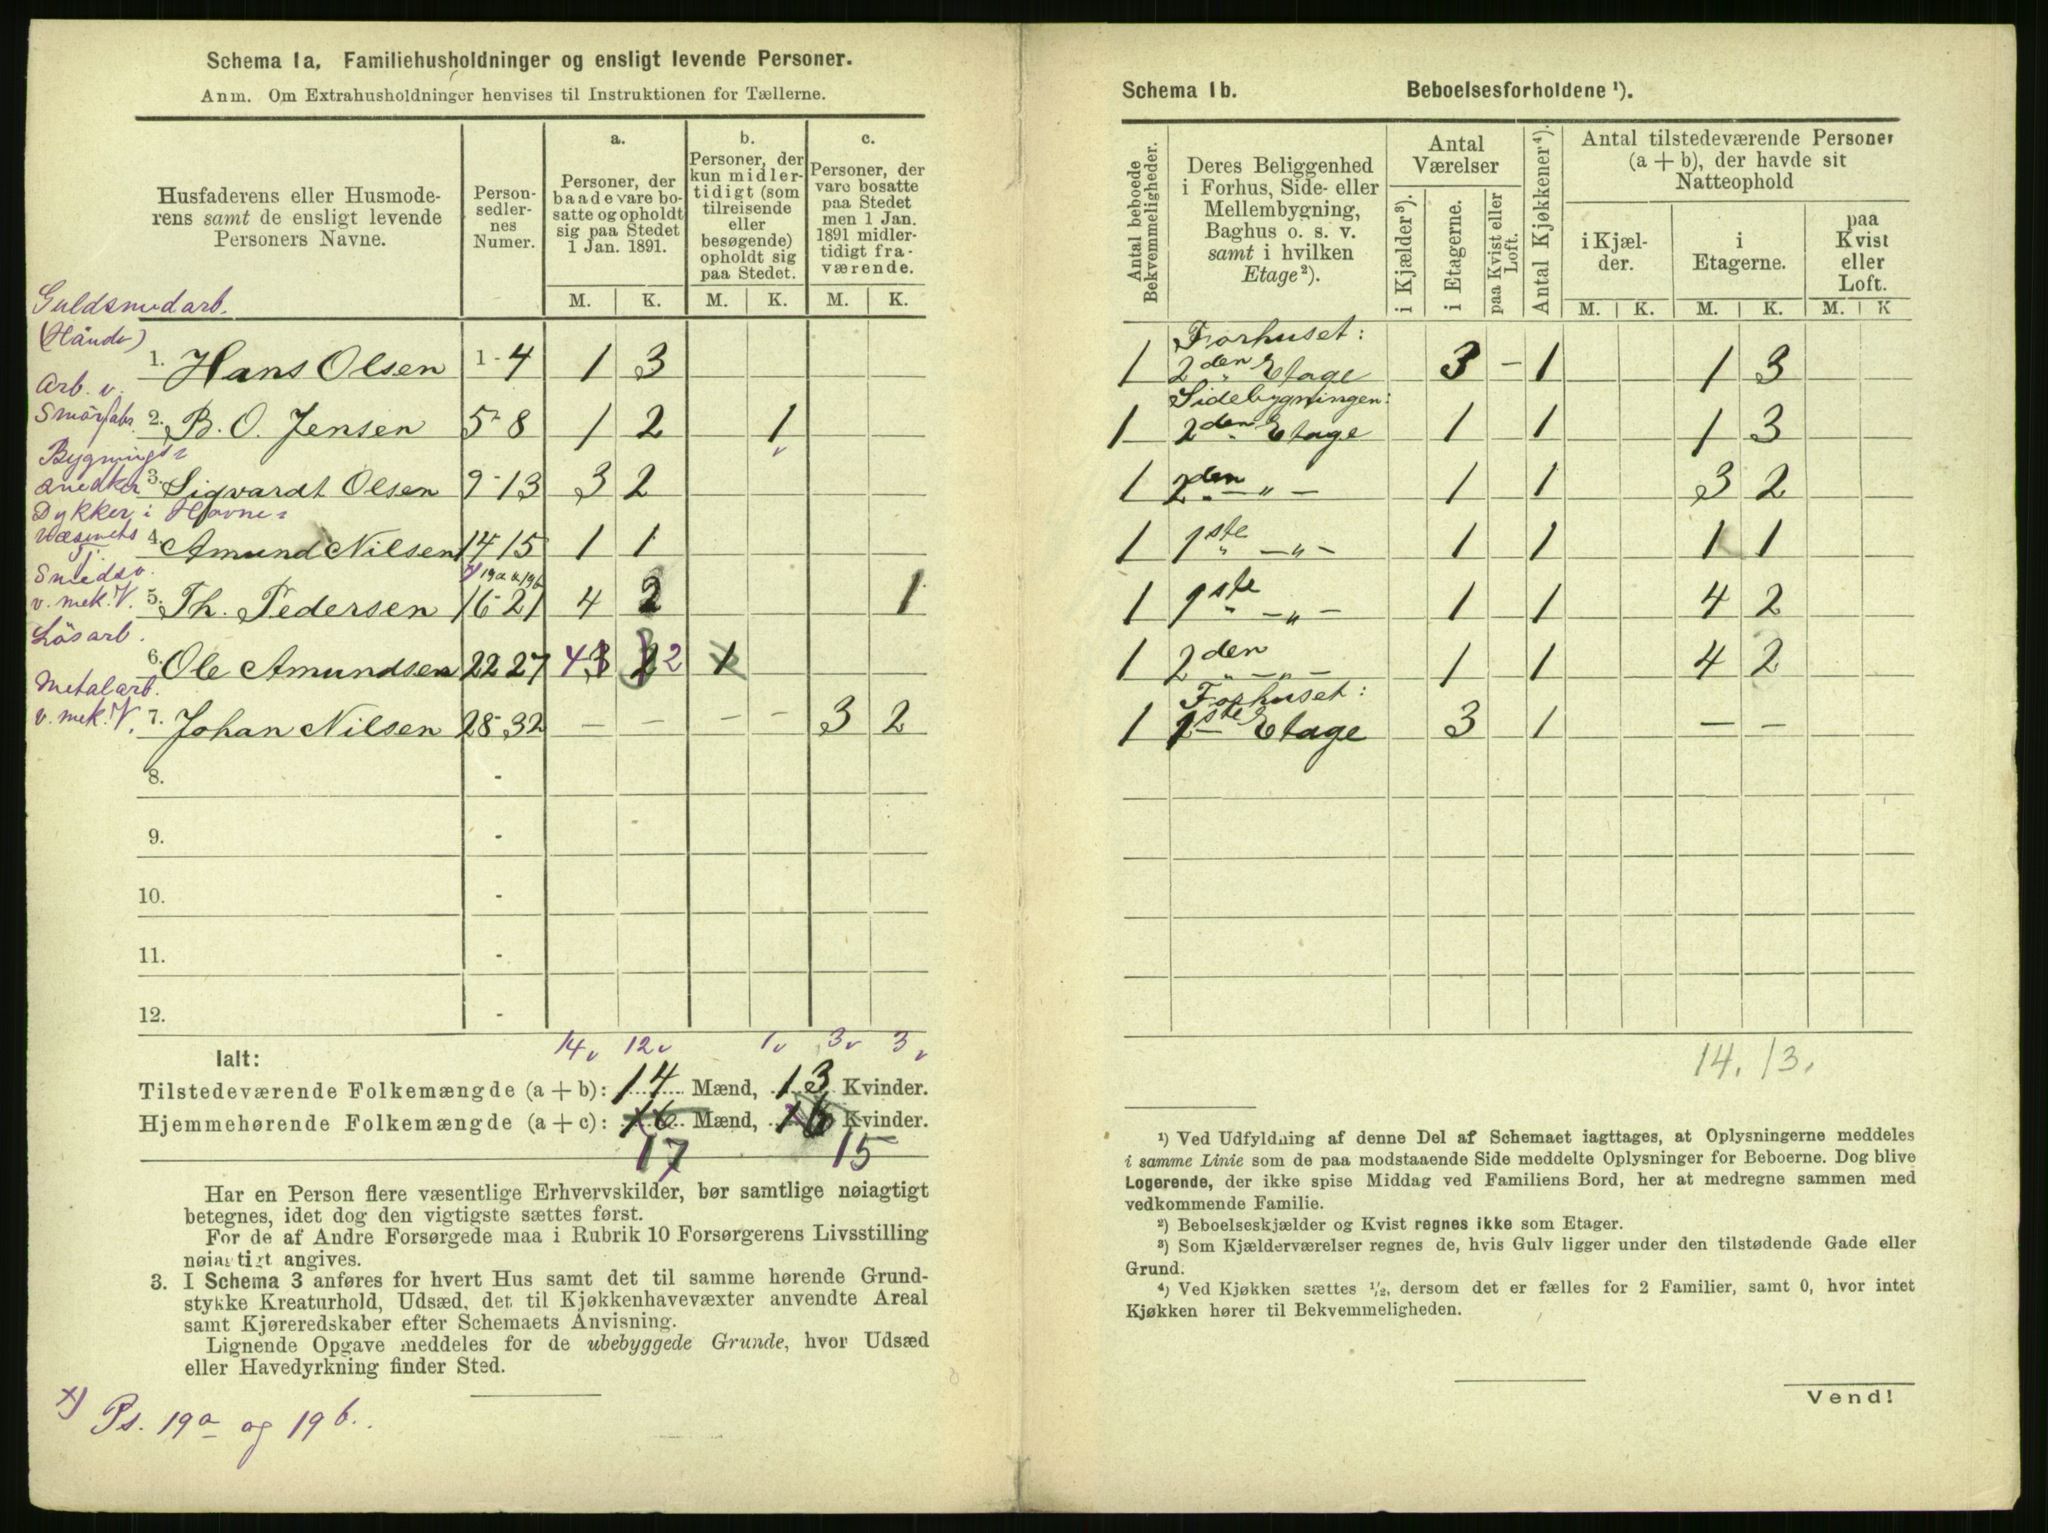 Schema 1a. Familiehusholdninger og ensligt levende Personer.
Anm. Om Extrahusholdninger henvises til Instruktionen for Tællerne.
Husfaderens eller Husmode-
rens samt de ensligt levende
Personers Navne.
Person-
sedler-
nes
Numer.
a.
Personer, der
baade vare bo-
satte og opholdt
sig paa Stedet
1 Jan. 1891.
b.
Personer, der
kun midler-
tidigt (som
tilreisende
eller
besøgende)
opholdt sig
paa Stedet.
c.
Personer, der
vare bosatte
paa Stedet
men 1 Jan.
1891 midler-
tidigt fra-
værende.
M. K. M. K. M. K.
Guldsmedarb.
(Hånde)
1. Hans Olsen 1-4 1 3
Arb. v.
Smörfabr.
2. B. O. Jensen 5-8 1 2 1
Bygnings-
snedker
3. Sigvardt Olsen 9-13 3 2
Dykker i Havne-
væsenets
Tj.
4. Amund Nilsen 14 15 1 1
Smedsv.
v. mek. V.
x) 19a o 19b
5. Th. Pedersen 16-21 4 2 1
Løsarb.
6. Ole Amundsen 22 27 4 3 2 1
Metalarb.
v. mek. V.
7. Johan Nilsen 28-32 — — — — 3 2
8. -
9. -
10. -
11. -
12. -
Ialt:
14v 12v 1v 3v 3v
Tilstedeværende Folkemængde (a + b): 14 Mænd, 13 Kvinder.
Hjemmehørende Folkemængde (a + c): 16 Mænd, 16 Kvinder.
17 15
Har en Person flere væsentlige Erhvervskilder, bør samtlige nøiagtigt
betegnes, idet dog den vigtigste sættes først.
For de af Andre Forsørgede maa i Rubrik 10 Forsørgerens Livsstilling
nøiagtigt angives.
3. I Schema 3 anføres for hvert Hus samt det til samme hørende Grund-
stykke Kreaturhold, Udsæd, det til Kjøkkenhavevæxter anvendte Areal
samt Kjøreredskaber efter Schemaets Anvisning.
Lignende Opgave meddeles for de ubebyggede Grunde, hvor Udsæd
eller Havedyrkning finder Sted.
x) Ps. 19a og 19b.
Schema 1b. Beboelsesforholdene ¹).
Antal beboede
Bekvemmeligheder.
Deres Beliggenhed
i Forhus, Side- eller
Mellembygning,
Baghus o. s. v.
samt i hvilken
Etage ²).
Antal
Værelser
i Kjælder ³).
i Etagerne.
paa Kvist eller
Loft.
Antal Kjøkkener ⁴).
Antal tilstedeværende Personer
(a + b), der havde sit
Natteophold
i Kjæl-
der.
i
Etagerne.
paa
Kvist
eller
Loft.
M. K. M. K. M. K
Forhuset:
1 2den Etage 3 - 1 1 3
Sidebygningen:
1 2den Etage 1 1 1 3
1 2den — „ — 1 1 3 2
1 1ste — „ — 1 1 1 1
1 1ste — „ — 1 1 4 2
1 2den — „ — 1 1 4 2
Forhuset:
1 1ste Etage 3 1 — —
14. 13.
¹) Ved Udfyldning af denne Del af Schemaet iagttages, at Oplysningerne meddeles
i samme Linie som de paa modstaaende Side meddelte Oplysninger for Beboerne. Dog blive
Logerende, der ikke spise Middag ved Familiens Bord, her at medregne sammen med
vedkommende Familie.
²) Beboelseskjælder og Kvist regnes ikke som Etager.
³) Som Kjælderværelser regnes de, hvis Gulv ligger under den tilstødende Gade eller
Grund.
⁴) Ved Kjøkken sættes ¹/₂, dersom det er fælles for 2 Familier, samt 0, hvor intet
Kjøkken hører til Bekvemmeligheden.
Vend!